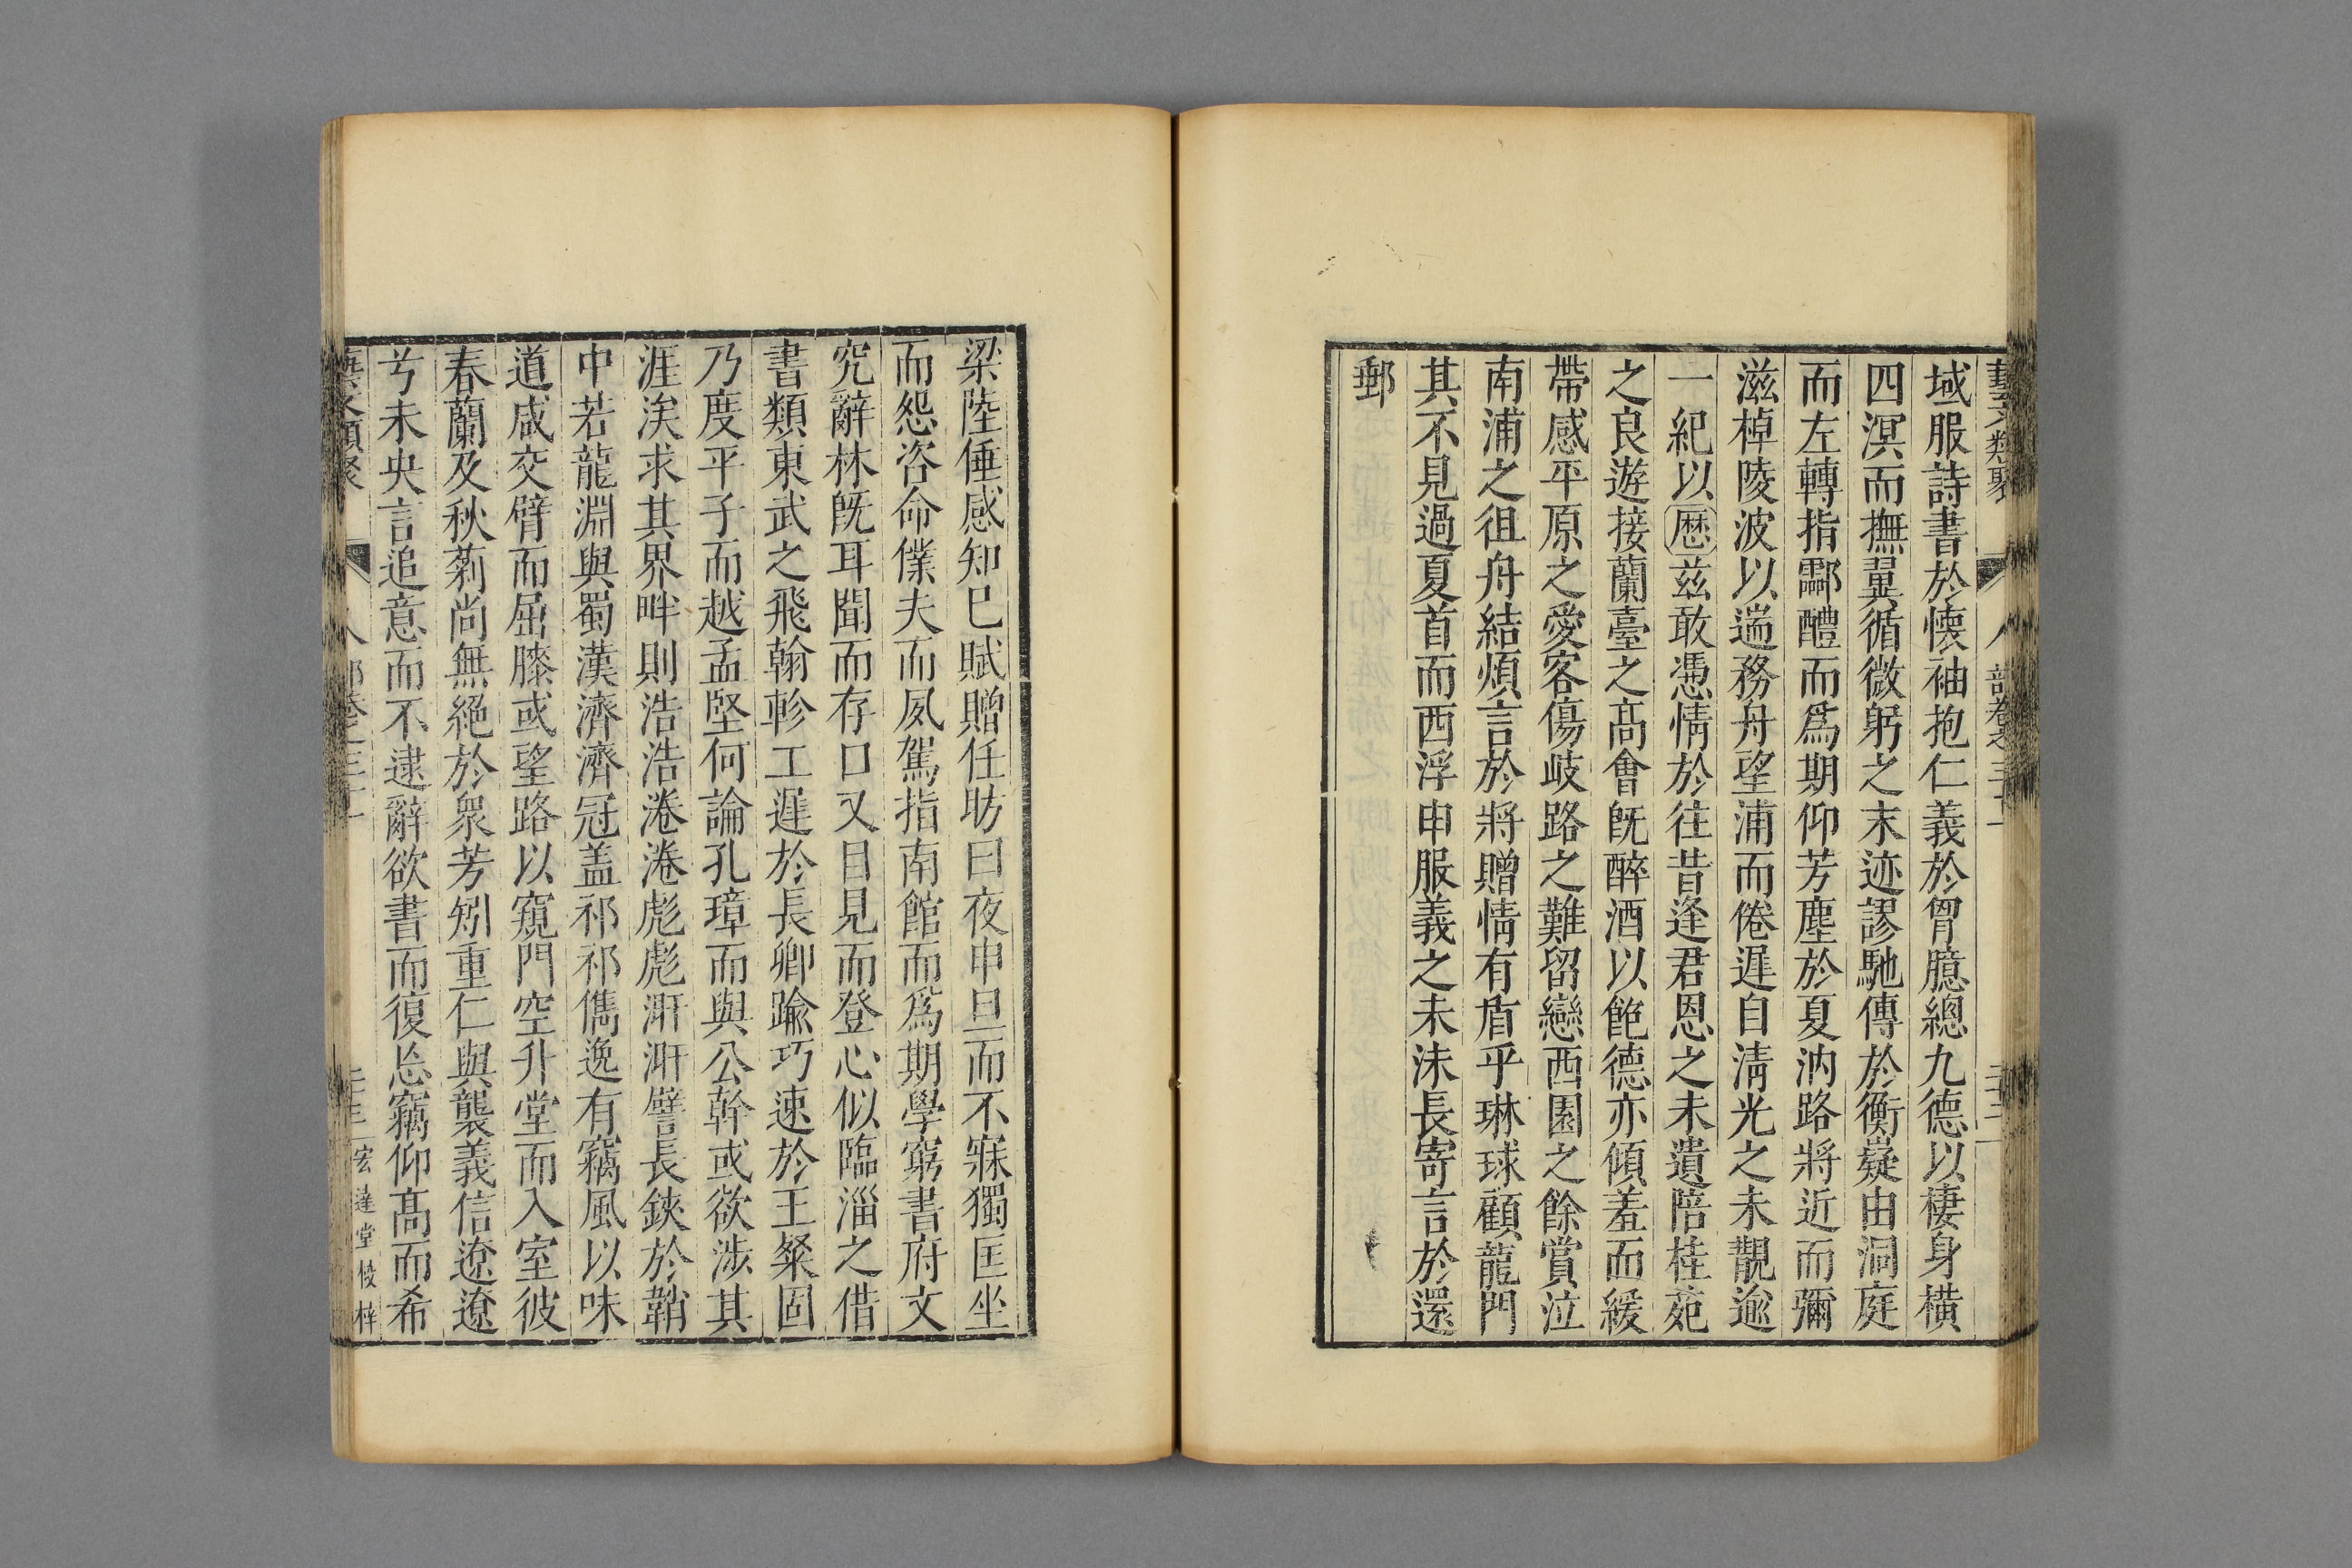 藝文類聚 人部卷三十一
域服詩書於懐袖抱仁義於胷臆總九德以棲身橫
四溟而撫翼循微躬之末迹謬馳傳於衡嶷由洞庭
而左轉指酃醴而爲期仰芳塵於夏汭路將近而彌
滋棹陵波以遄務舟望浦而倦遲自淸光之未覯逾
一紀以歴茲敢憑情於往昔逢君恩之未遺陪桂苑
之良遊接蘭臺之髙會旣醉酒以飽德亦傾羞而緩
帶感平原之愛客傷岐路之難留戀西園之餘賞泣
南浦之徂舟結煩言於將贈情有㫺乎琳球顧龍門
其不見過夏首而西浮申服義之未沬長寄言於還
郵
梁陸倕感知巳賦贈任昉曰夜申旦而不寐獨匡坐
而怨咨命僕夫而夙駕指南館而爲期學窮書府文
究辭林旣耳聞而存口又目見而登心似臨淄之借
書類東武之飛翰軫工遲於長卿踰巧速於王粲固
乃度平子而越孟堅何論孔璋而與公幹或欲涉其
涯涘求其界畔則浩浩淃淃彪彪汧汧譬長鋏於鞘
中若龍淵與蜀漢濟濟冠盖祁祁儁逸有竊風以味
道咸交臂而屈膝或望路以窺門空升堂而入室彼
春蘭及秋菊尚無絕於衆芳矧重仁與襲義信遼遼
兮未央言追意而不逮辭欲書而復忘竊仰髙而希
藝文類聚 人部卷之三十一 宏達堂校梓